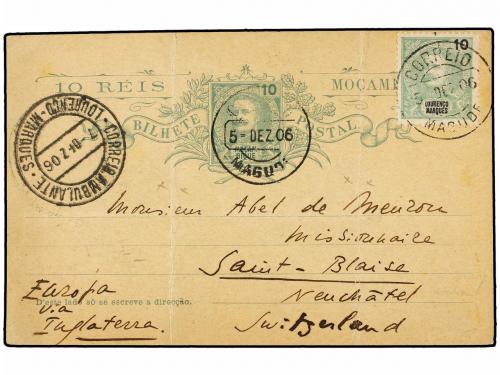 10 RÉIS MOÇAM
10
BILHETE POSTAL
CORREIO
10
5 DEZ 06
LOURENÇO
MARQUES
MAGUDE
5- DEZ.06
MAGUDE
CORREIO AMBULANTE
LOURENÇO-MARQUES
Monsieur Abel de Meuron
Missionnaire
Saint-Blaise
Neuchâtel
Switzerland
Europa
via
Inglaterra.
D'este lado só se escreve a direcção.